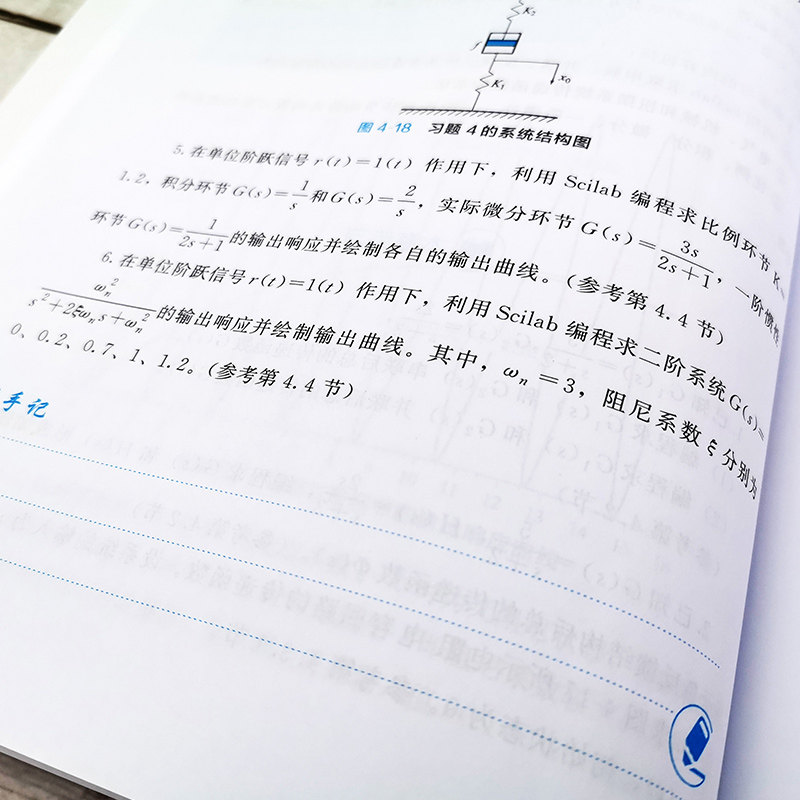 K₂
f
x₀
K₁
图 4-18 习题 4 的系统结构图
5. 在单位阶跃信号 r(t)=1(t) 作用下，利用 Scilab 编程求比例环节 K
1.2，积分环节 G(s)=1/s 和 G(s)=2/s，实际微分环节 G(s)=3s/(2s+1)，一阶惯性
环节 G(s)=1/(2s+1) 的输出响应并绘制各自的输出曲线。(参考第 4.4 节)
6. 在单位阶跃信号 r(t)=1(t) 作用下，利用 Scilab 编程求二阶系统 G(s)=
ωₙ²/(s²+2ξωₙs+ωₙ²) 的输出响应并绘制输出曲线。其中，ωₙ=3，阻尼系数 ξ 分别为
0、0.2、0.7、1、1.2。(参考第 4.4 节)
手记